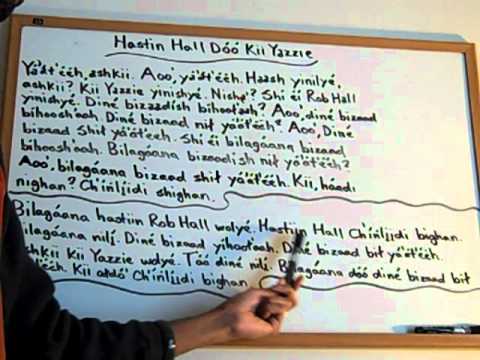 Hastiin Hall Dóó Kii Yazzie
Yá'át'ééh, ashkii. Aoo', yá'át'ééh. Haash yinilyé,
ashkii? Kii Yazzie yinishyé. Nisha'? Shí éí Rob Hall
yinishyé. Diné bizaadísh bíhooł'aah? Aoo, diné bizaad
bíhoosh'aah. Diné bizaad nił yá'át'ééh? Aoo, Diné
bizaad shił yá'át'ééh. Shí éí bilagáana bizaad
bíhoosh'aah. Bilagáana bizaadísh nił yá'át'ééh?
Aoo', bilagáana bizaad shił yá'át'ééh. Kii, háadi
nighan? Ch'ínílįįdi shighan.
Bilagáana hastiin Rob Hall wolyé. Hastiin Hall Ch'ínílįįdi bighan.
Bilagáana nilį́. Diné bizaad yíhooł'aah. Diné bizaad bił yá'át'ééh.
Ashkii Kii Yazzie wolyé. Táá diné nilį́. Bilagáana dóó diné bizaad bił
yá'át'ééh. Kii ałdó' Ch'ínílįįdi bighan.